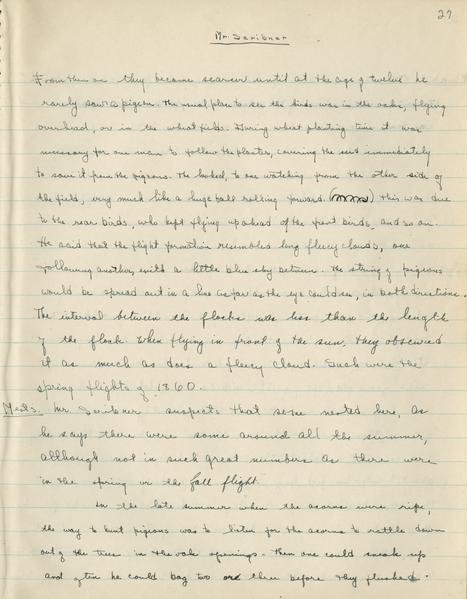 27
Mr. Scribner
From then on they became scarcer until at the age of twelve he
rarely saw a pigeon. The usual plan to see the birds was in the oaks, flying
overhead, or in the wheat fields. During wheat planting time it was
necessary for one man to follow the planter, covering the seed immediately
to save it from the pigeons. The looked, to one watching from the other side of
the field, very much like a huge ball rolling forward. This was due
to the rear birds, who kept flying up ahead of the front birds, and so on.
He said that the flight formation resembled long fleecy clouds, one
following another, with a little blue sky between. The string of pigeons
would be spread out in a line as far as the eye could see, in both directions.
The interval between the flocks was less than the length
of the flock. When flying in front of the sun, they obscured
it as much as does a fleecy cloud. Such were the
spring flights of 1860.
Nests. Mr. Scribner suspects that some nested here, as
he says there were some around all the summer,
although not in such great numbers as there were
in the spring or the fall flight.
In the late summer when the acorns were ripe,
the way to hunt pigeons was to listen for the acorns to rattle down
out of the trees in the oak openings. Then one could sneak up
and often he could bag two or three before they flushed.